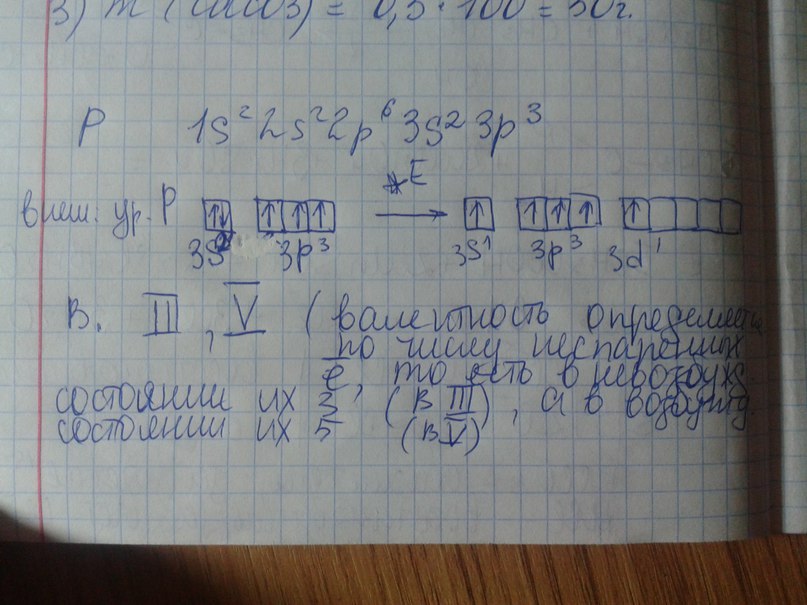 3) m (CaCO3) = 0,5 · 100 = 50г.
P 1s² 2s² 2p⁶ 3s² 3p³
внеш. ур. P ↑↓ ↑ ↑ ↑ *E → ↑ ↑ ↑ ↑ ↑
3s² 3p³ 3s¹ 3p³ 3d¹
В. III, V (валентность определяется
по числу неспареных
e, то есть в невозбужд
состоянии их 3 (В III), а в возбужд.
состоянии их 5 (В V)